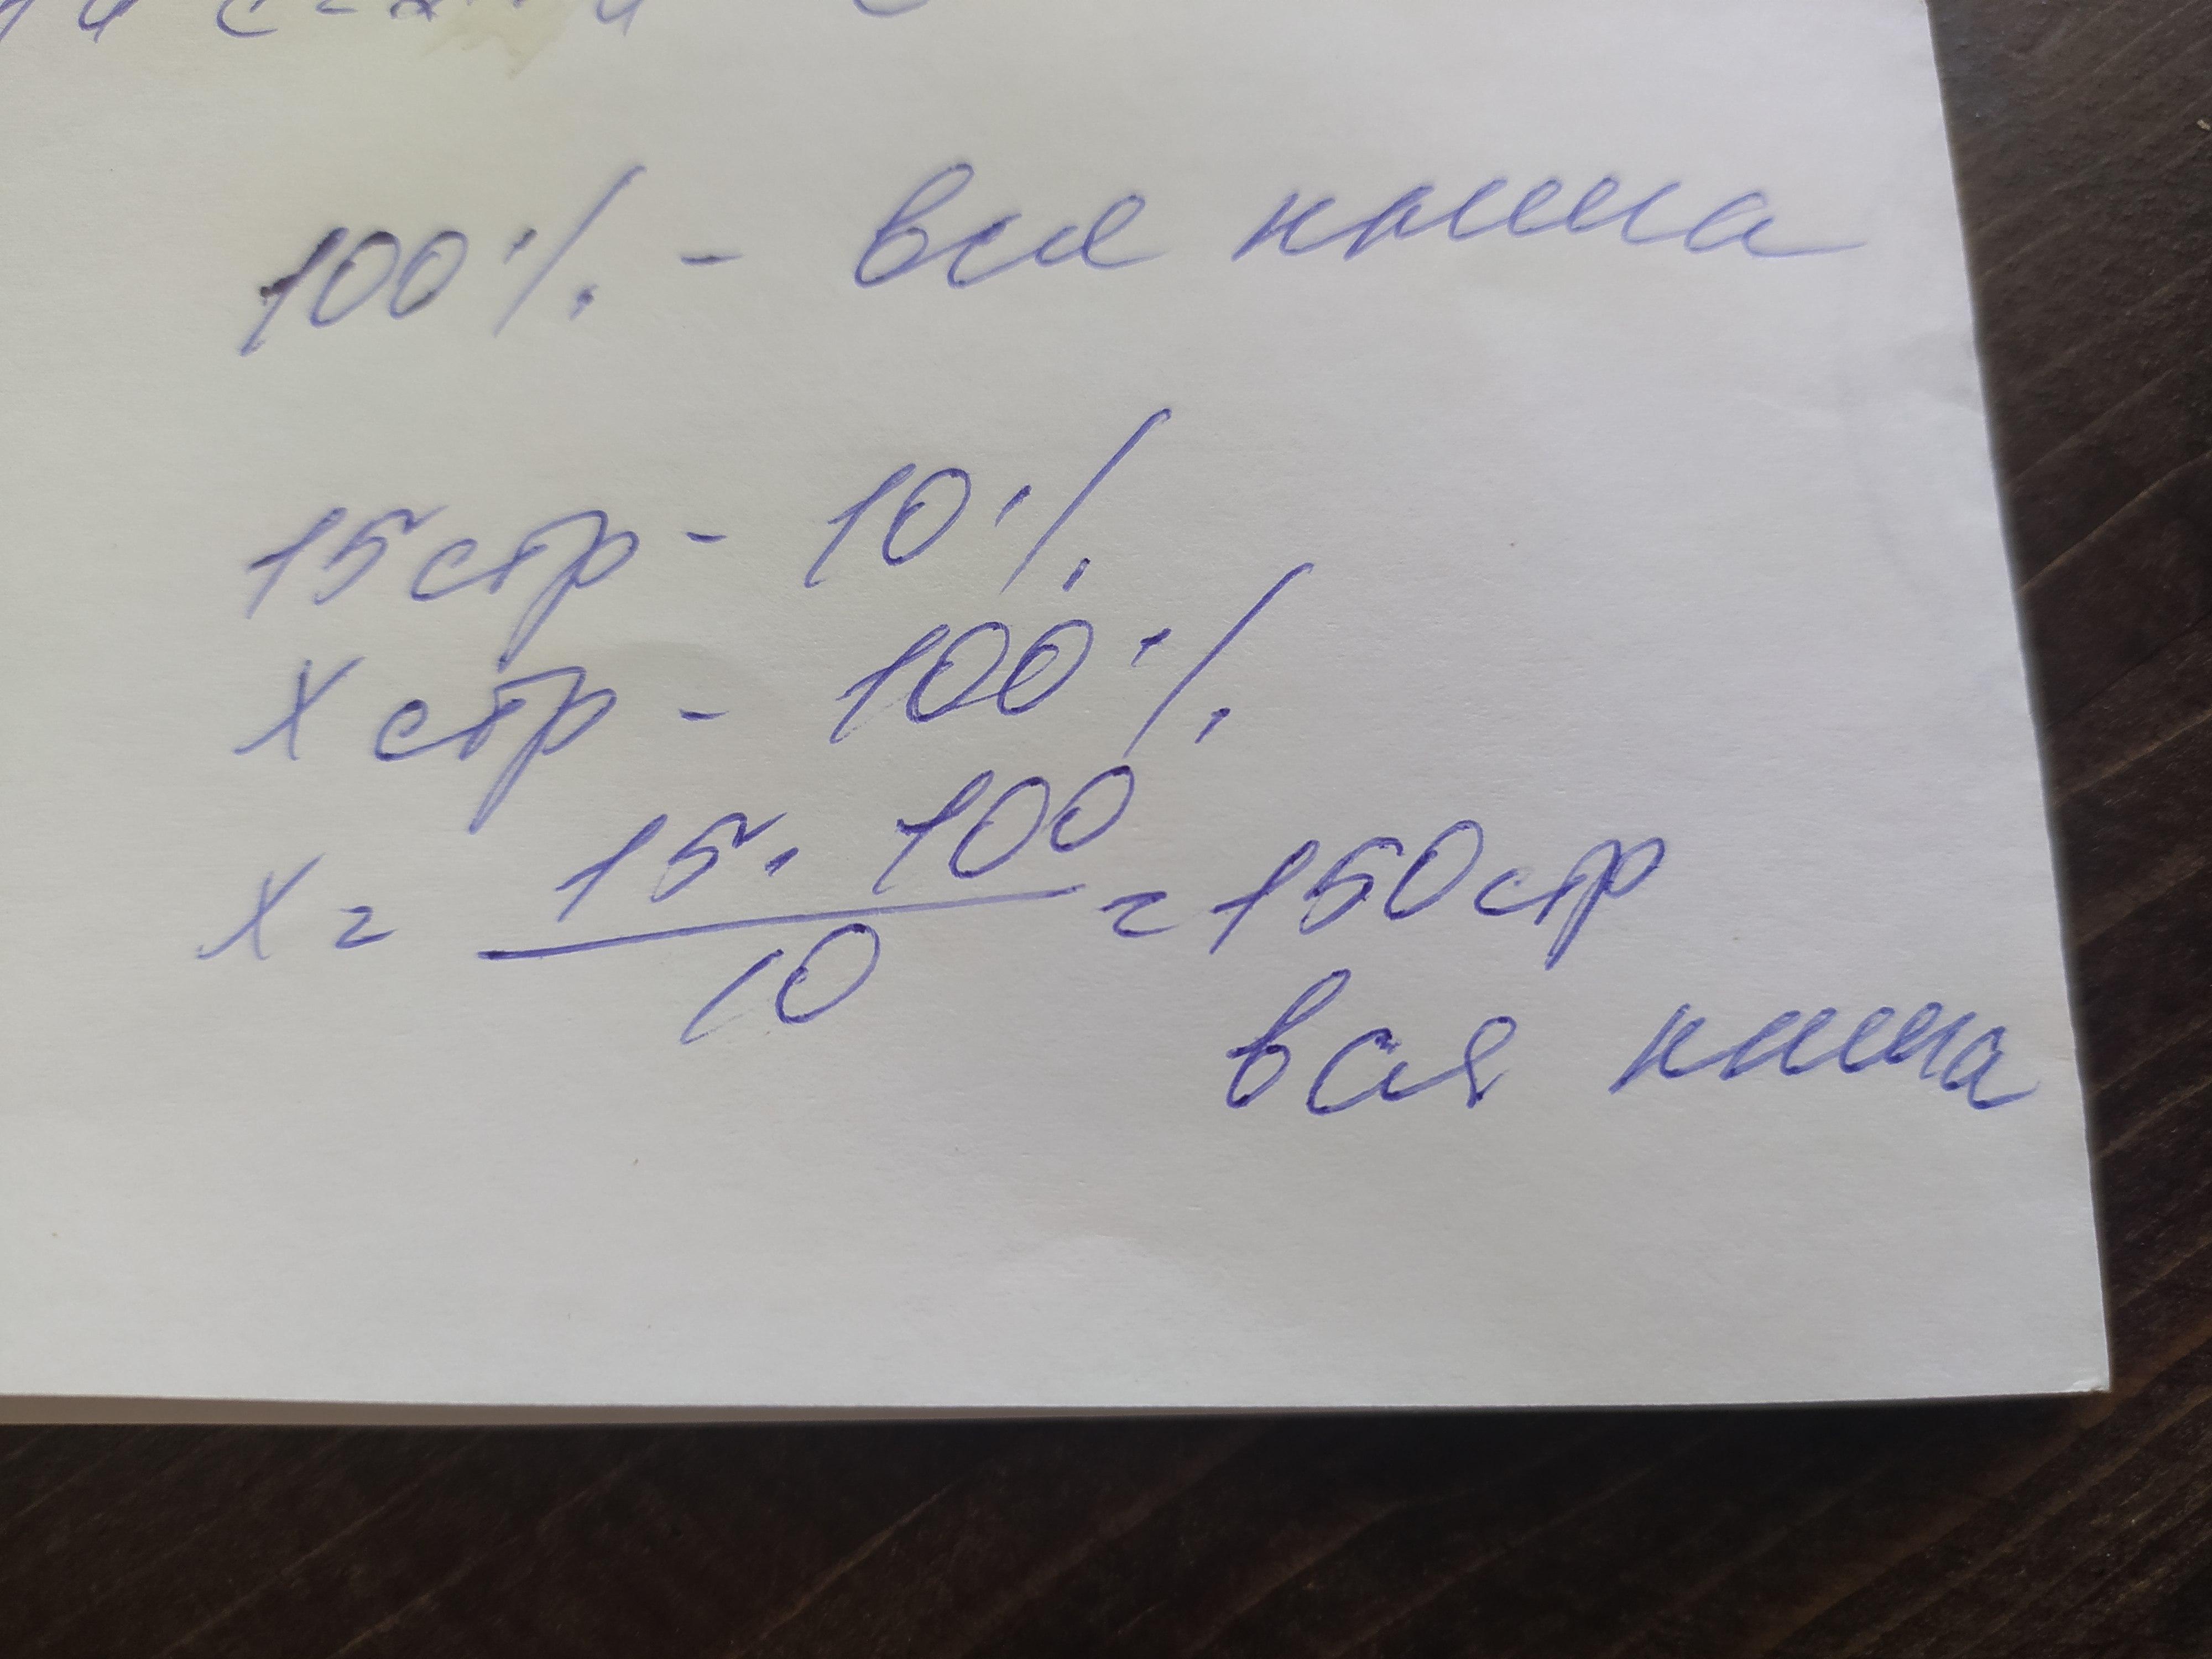 100% - вся книга
15 стр - 10%
х стр - 100%
х = 15 · 100 / 10 = 150 стр
вся книга